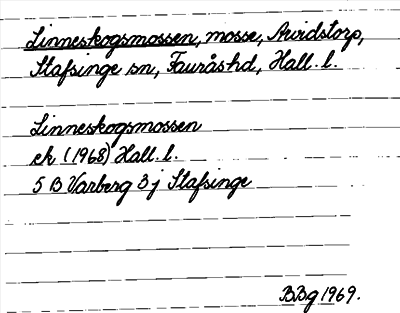 Linneskogsmossen, mosse, Arvidstorp,
Stafsinge sn, Faurås hd, Hall. l.
Linneskogsmossen
ek (1968) Hall. l.
5 B Varberg 3 j Stafsinge
BBg 1969.